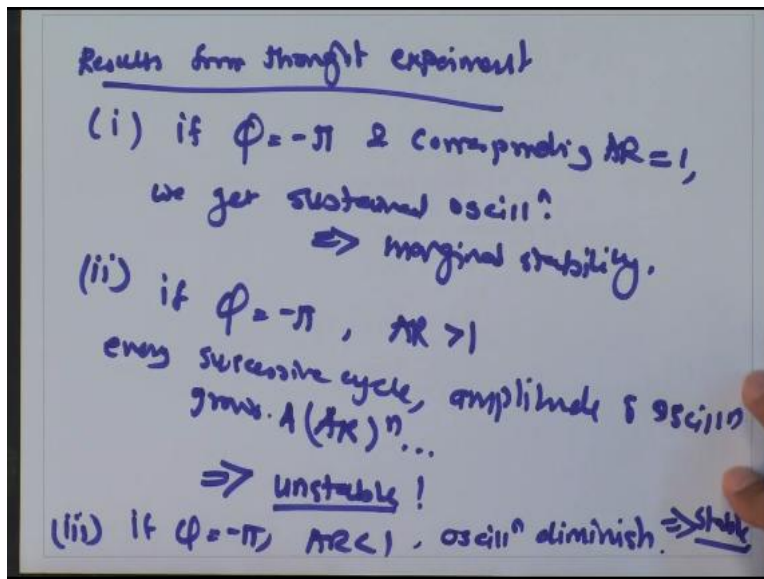 Results from thought experiment
(i) if φ = -π & corresponding AR = 1,
we get sustained oscillⁿ.
⇒ marginal stability.
(ii) if φ = -π, AR > 1
every successive cycle, amplitude of oscillⁿ
grows. A(AR)ⁿ...
⇒ unstable!
(iii) if φ = -π, AR < 1, oscillⁿ diminish. ⇒ stable